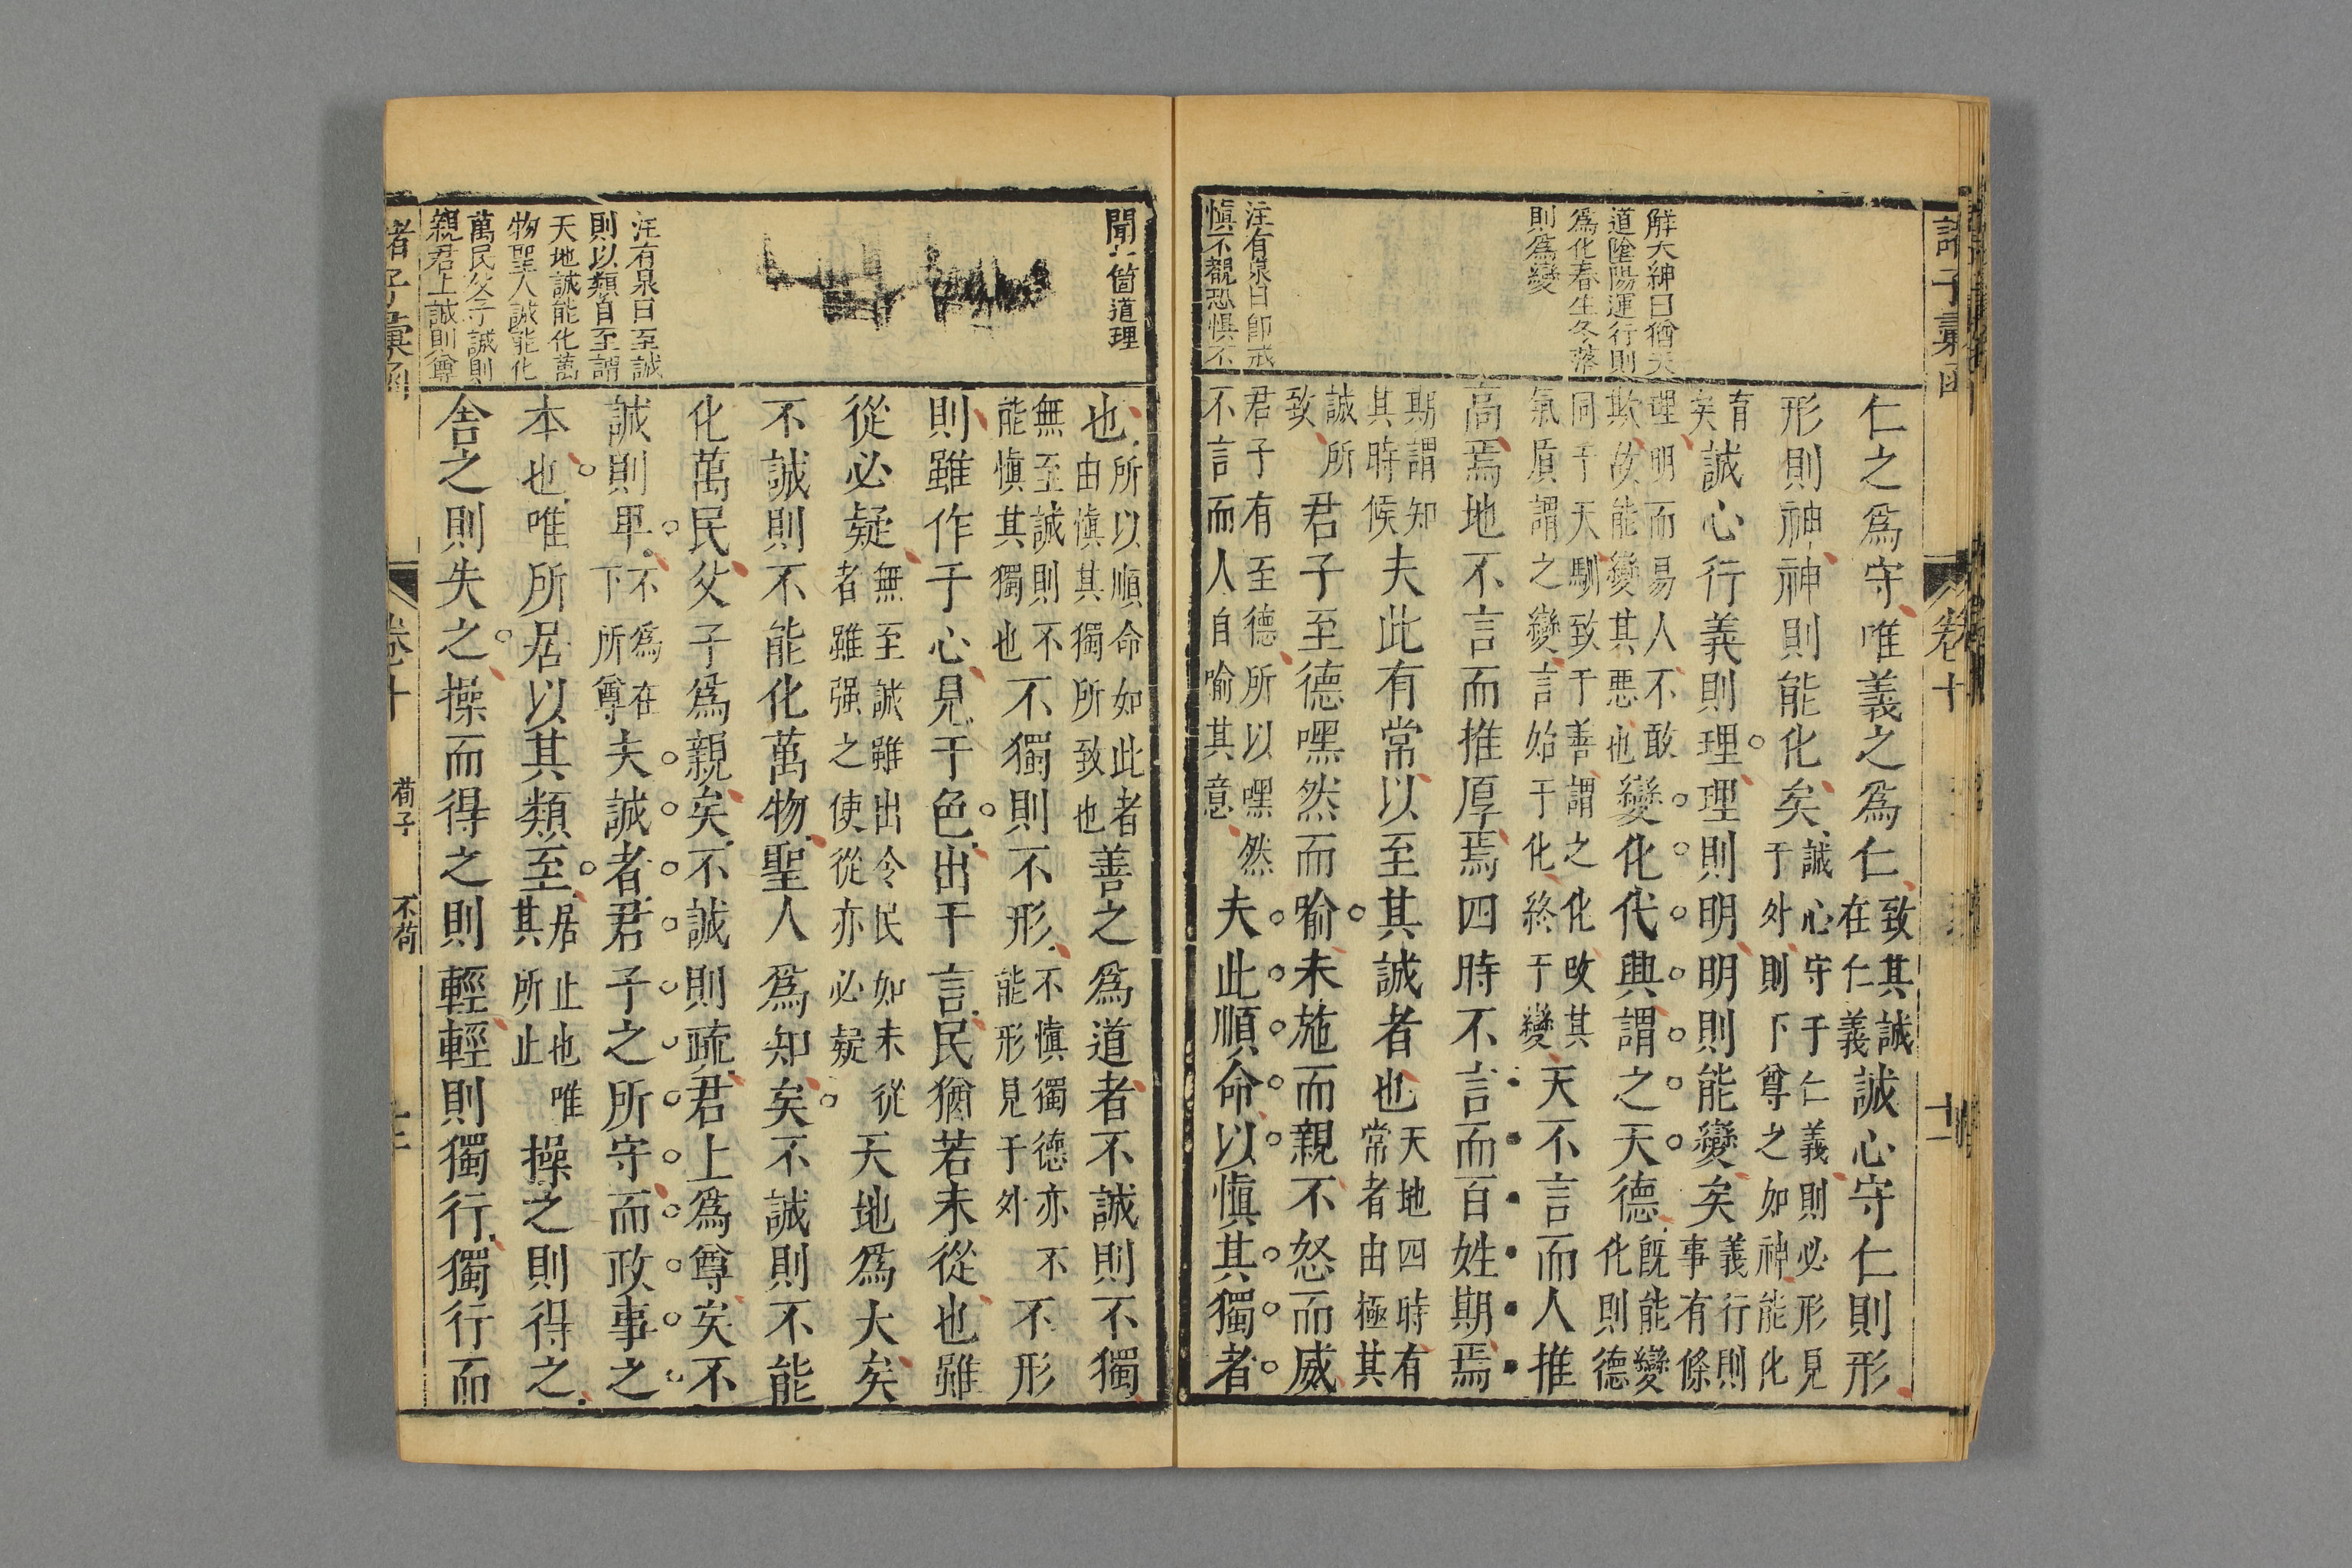 諸子彙函
卷十
十一
解大紳曰猶天
道陰陽運行則
爲化春生冬落
則爲變
汪有泉曰卽戒
慎不覩恐懼不
仁之爲守唯義之爲仁致其誠在仁義誠心守仁則形
形則神神則能化矣誠心守于仁義則必形見于外則下尊之如神能化
育矣誠心行義則理理則明明則能變矣義行則事有條
理明而易人不敢欺故能變其惡也變化代興謂之天德旣能變化則德
同于天馴致于善謂之化改其氣質謂之變言始于化終于變天不言而人推
高焉地不言而推厚焉四時不言而百姓期焉
期謂知其時候夫此有常以至其誠者也天地四時有常者由極其
誠所致君子至德嘿然而喻未施而親不怒而威
君子有至德所以嘿然不言而人自喻其意夫此順命以慎其獨者
聞六箇道理
汪有泉曰至誠
則以類自至謂
天地誠能化萬
物聖人誠能化
萬民父子誠則
親君上誠則尊
也所以順命如此者由慎其獨所致也善之爲道者不誠則不獨
無至誠則不能慎其獨也不獨則不形不慎獨德亦不能形見于外不形
則雖作于心見于色出于言民猶若未從也雖
從必疑無至誠雖出令民如未從者雖强之使從亦必疑天地爲大矣
不誠則不能化萬物聖人爲知矣不誠則不能
化萬民父子爲親矣不誠則疏君上爲尊矣不
誠則卑不爲在下所尊夫誠者君子之所守而政事之
本也唯所居以其類至居止也唯其所止操之則得之
舍之則失之操而得之則輕輕則獨行獨行而
諸子彙函
卷十
荀子
不苟
十二